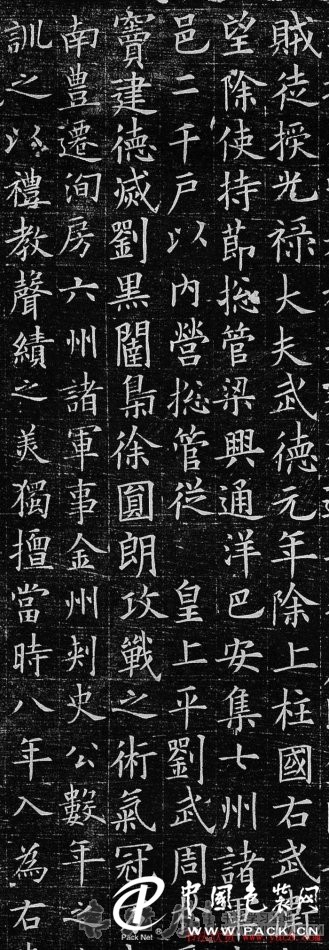 賊徒授光祿大夫武德元年除上柱國右武衛
望除使持節捴管梁興通洋巴安集七州諸軍
邑二千戶以內營捴管從皇上平劉武周
竇建德滅劉黑闥梟徐圓朗攻戰之術氣冠
南豊遷洵房六州諸軍事金州刾史公數年之
訓之以禮教聲績之美獨擅當時八年入為右
中国包装网
Pack Net
WWW.PACK.CN